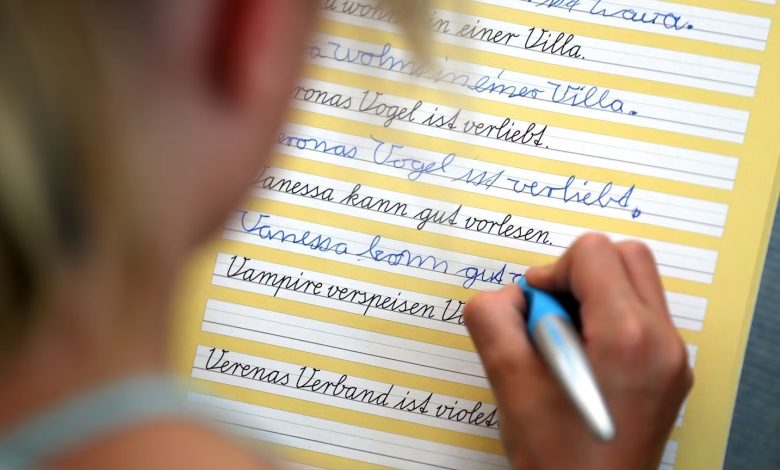 in einer Villa.
a wohnt in einer Villa.
ronas Vogel ist verliebt.
eronas Vogel ist verliebt.
Vanessa kann gut vorlesen.
Vanessa kann gut v
Vampire verspeisen V
Verenas Verband ist violet